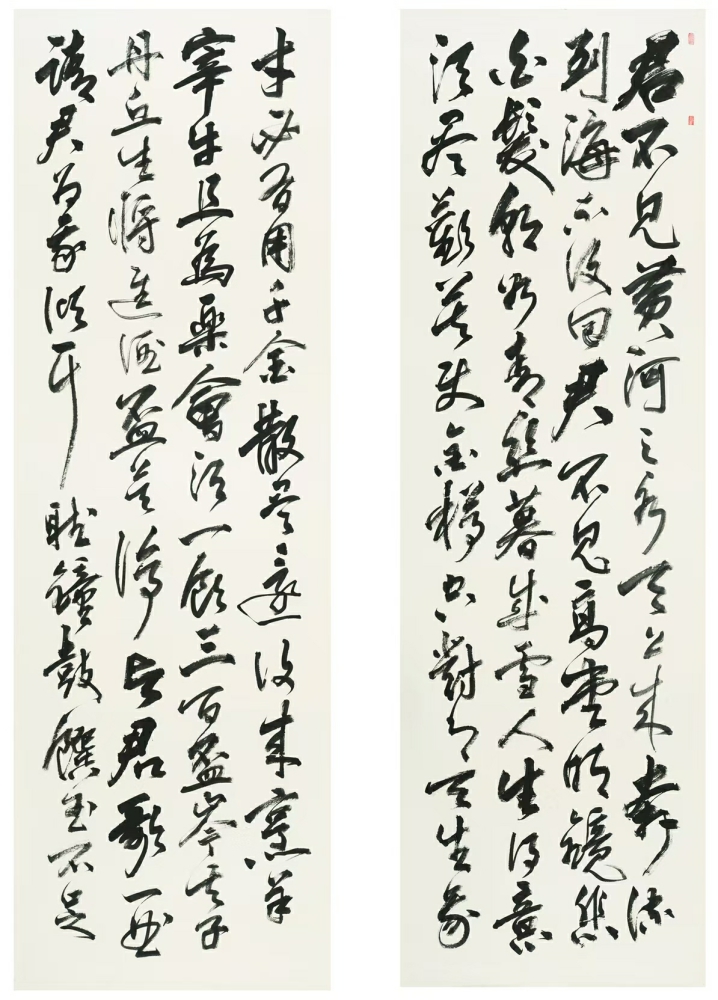 君不見黃河之水天上來奔流
到海不復回君不見高堂明鏡悲
白髮朝如青絲暮成雪人生得意
須盡歡莫使金樽空對月天生我
才必有用千金散盡還復來烹羊
宰牛且為樂會須一飲三百盃岑夫子
丹丘生將進酒盃莫停與君歌一曲
請君為我傾耳聽鐘鼓饌玉不足